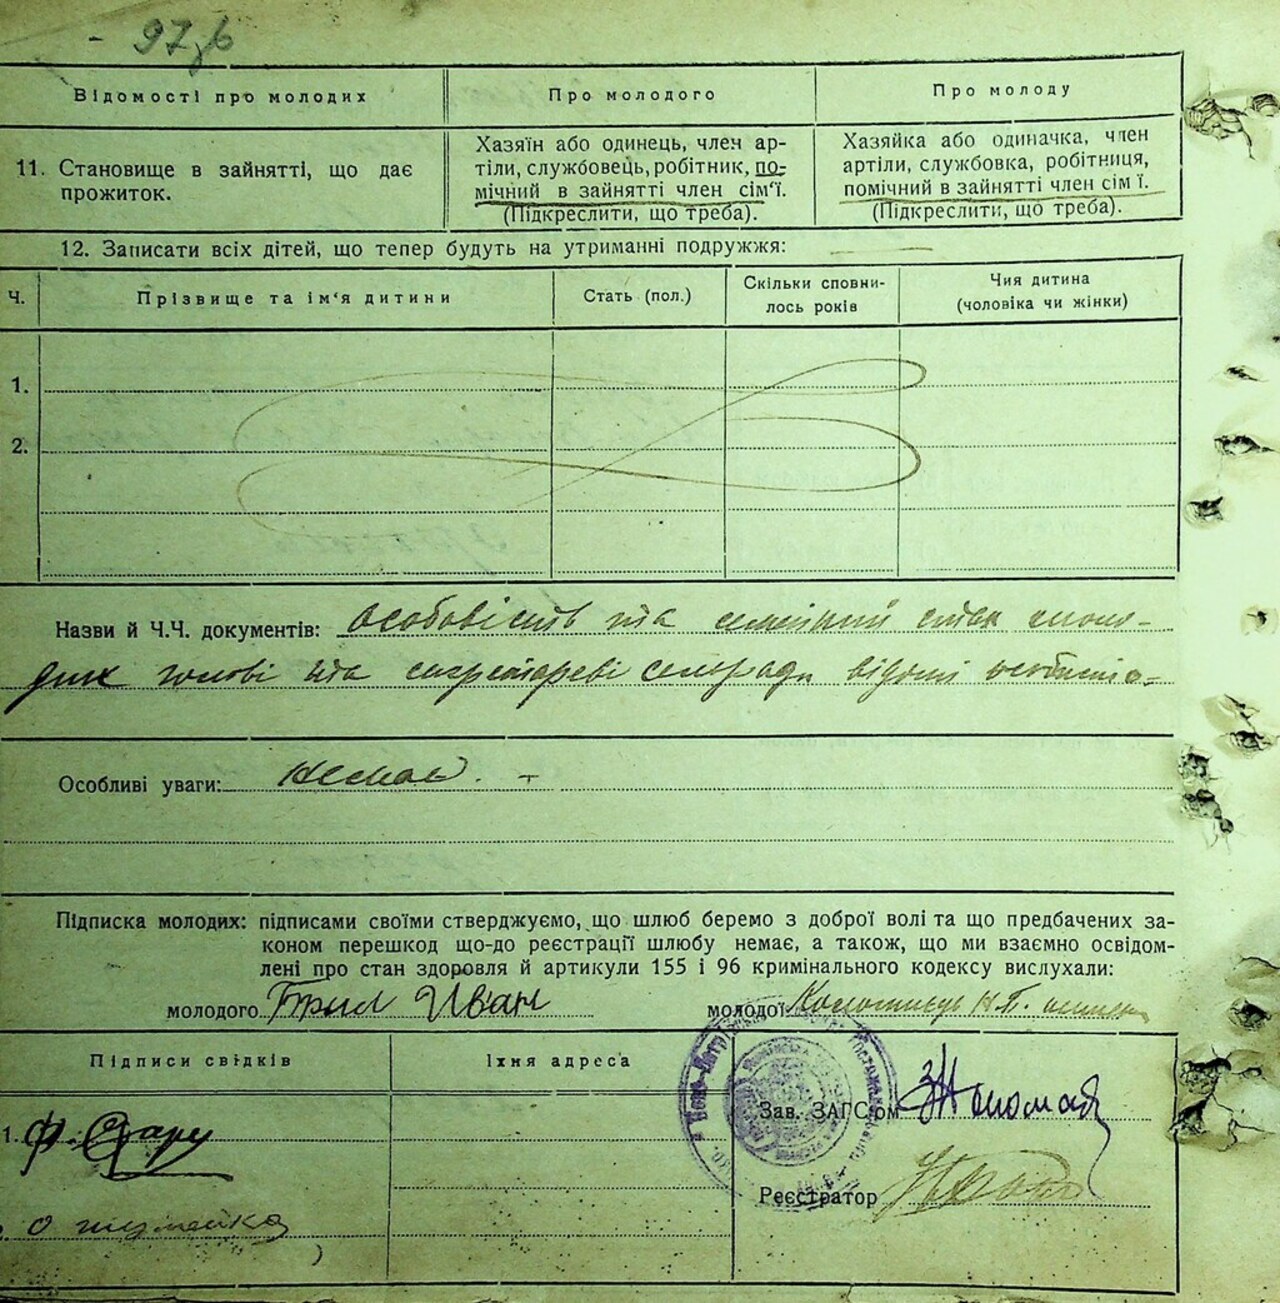 - 97зб
Відомості про молодих
Про молодого
Про молоду
11. Становище в зайнятті, що дає
прожиток.
Хазяїн або одинець, член ар-
тіли, службовець, робітник, по-
мічний в зайнятті член сім'ї.
(Підкреслити, що треба).
Хазяйка або одиначка, член
артіли, службовка, робітниця,
помічний в зайнятті член сім'ї.
(Підкреслити, що треба).
12. Записати всіх дітей, що тепер будуть на утриманні подружжя: —
Ч.
Прізвище та ім'я дитини
Стать (пол.)
Скільки сповни-
лось років
Чия дитина
(чоловіка чи жінки)
1.
2.
Назви й Ч.Ч. документів: Особовість та семейний стан моло-
дих голові та секретареві сельради відомі особисто=
Особливі уваги: немає. -
Підписка молодих: підписами своїми стверджуємо, що шлюб беремо з доброї волі та що предбачених за-
коном перешкод що-до реєстрації шлюбу немає, а також, що ми взаємно освідом-
лені про стан здоровля й артикули 155 і 96 кримінального кодексу вислухали:
молодого Брил Иван
молодої
Підписи свідків
Їхня адреса
Зав. ЗАГС'ом
1.
Реєстратор